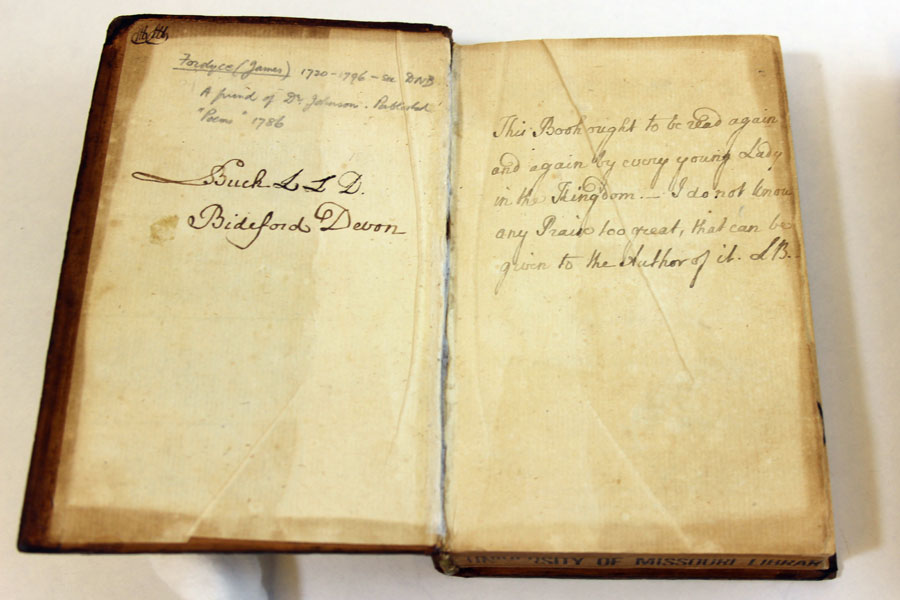 Fordyce (James) 1720-1796 - see DNB
A friend of Dr Johnson. Published
"Poems" 1786
Buck L L D.
Bideford Devon
This Book ought to be read again
and again by every young Lady
in the Kingdom. — I do not know
any Praise too great, that can be
given to the Author of it. LB.
SITY OF MISSOURI LIBRAR